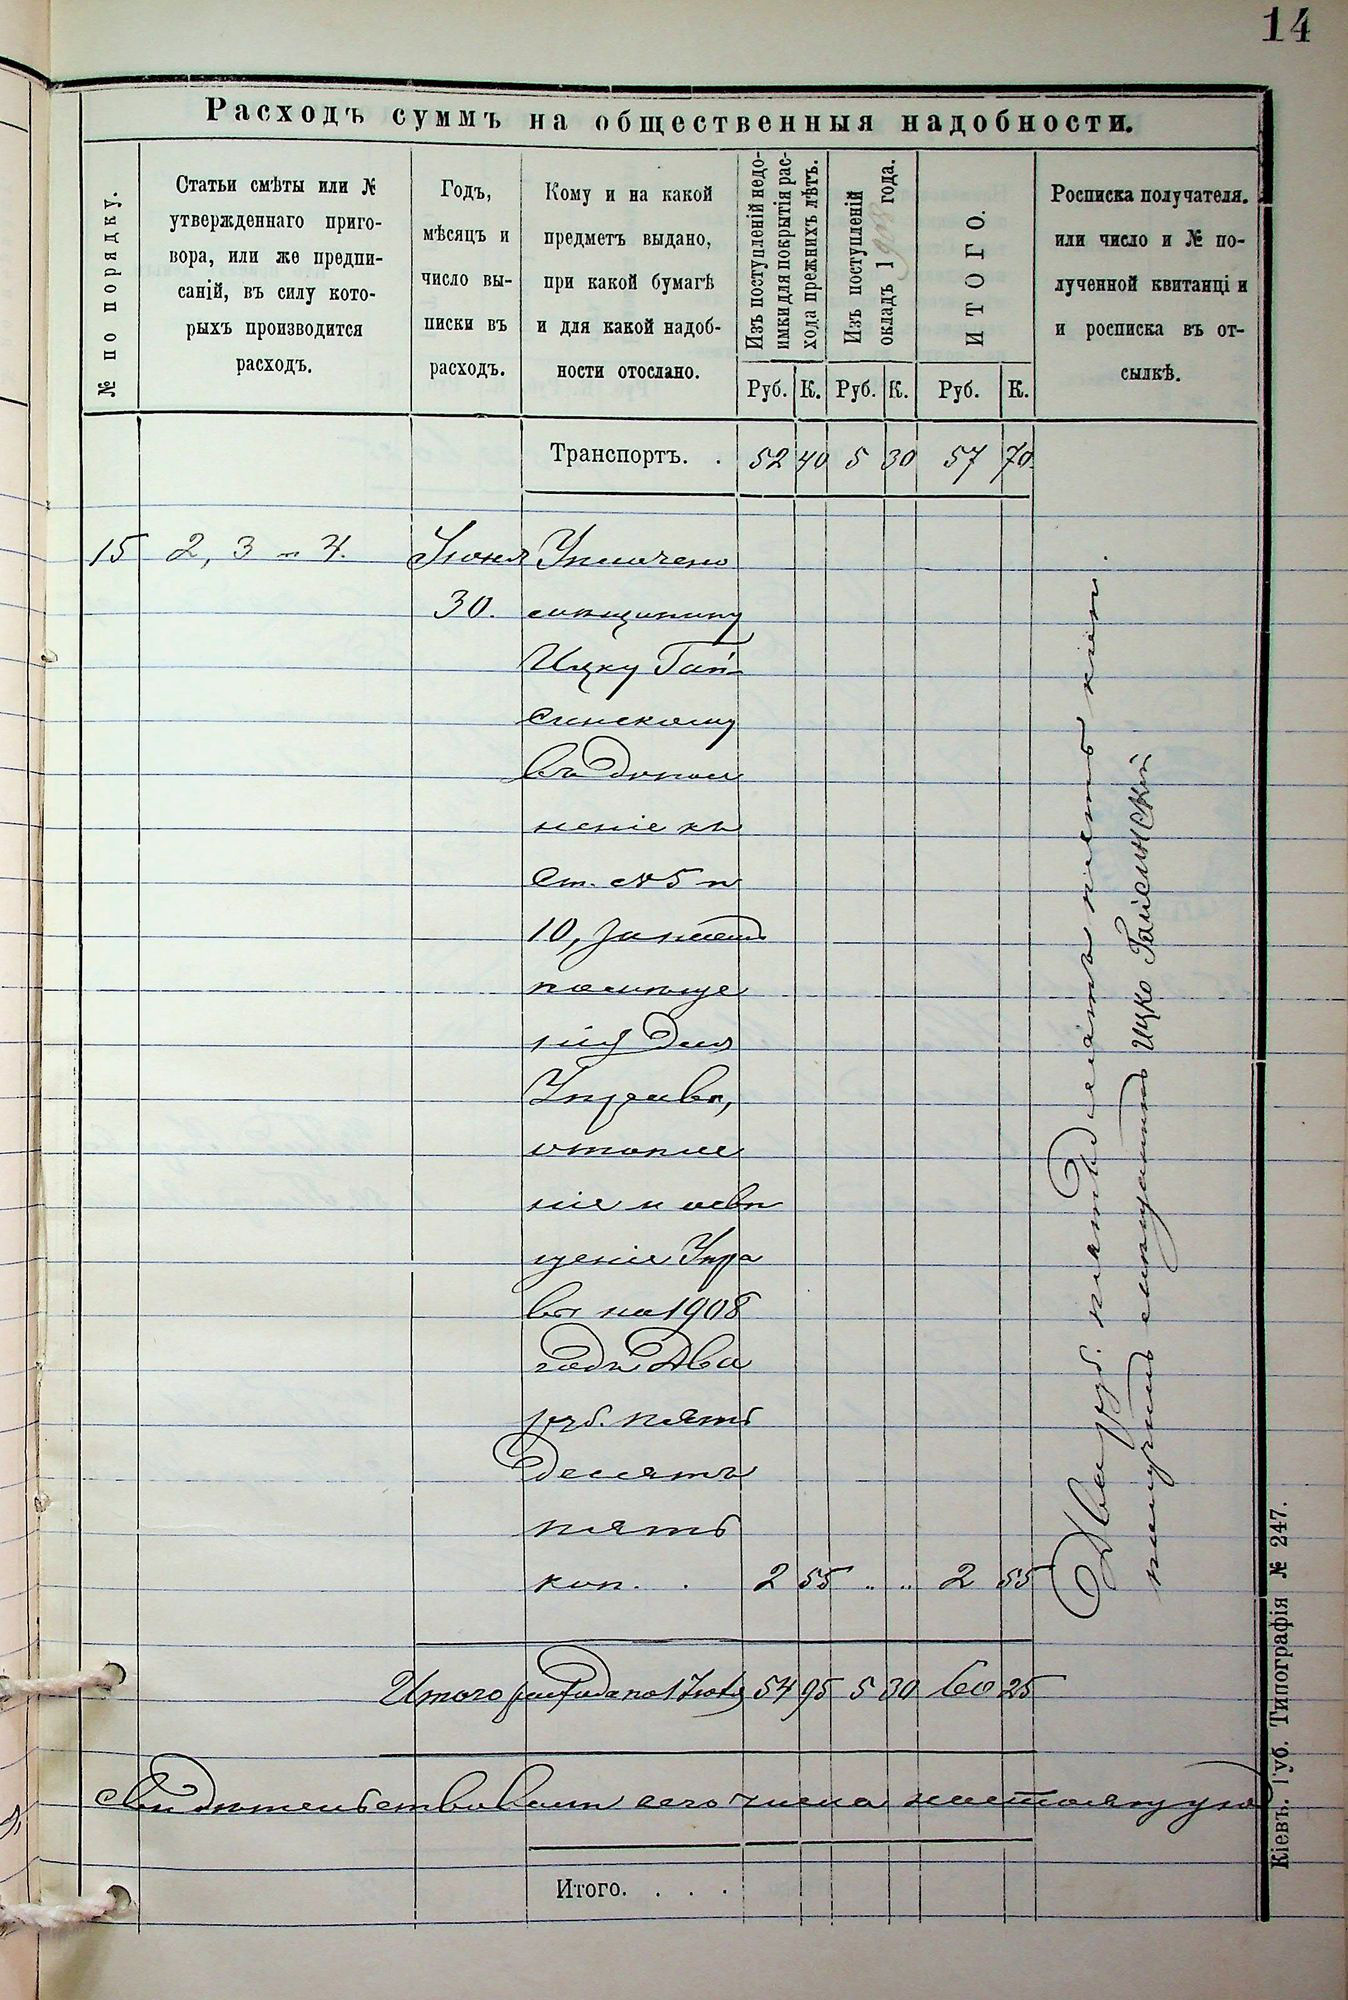 14
Расходъ суммъ на общественныя надобности.
№ по порядку.
Статьи смѣты или №
утвержденнаго приго-
вора, или же предпи-
саній, въ силу кото-
рыхъ производится
расходъ.
Годъ,
мѣсяцъ и
число вы-
писки въ
расходъ.
Кому и на какой
предметъ выдано,
при какой бумагѣ
и для какой надоб-
ности отослано.
Изъ поступленій недо-
имки для покрытія рас-
хода прежнихъ лѣтъ.
Изъ поступленій
окладъ 1908 года.
ИТОГО.
Росписка получателя.
или число и № по-
лученной квитанці и
и росписка въ от-
сылкѣ.
Руб. К. Руб. К. Руб. К.
Транспортъ. . 52 40 5 30 57 70
15 2, 3 и 4. Іюня Уплачено
30. мѣщанину
Ицку Гай-
синскому
въ допол
неніе къ
Ст. №5 и
10, за наемъ
помѣще
нія для
Управы,
отопле
ніе и освѣ
щеніе Упра
вы на 1908
годъ Два
руб. пять
десятъ
пять
коп. . 2 55 " " 2 55
Два руб. пятьдесятъ пять коп.
получилъ мѣщанинъ Ицко Гайсинскій
Итого расхода на 1 Іюля 54 95 5 30 60 25
Свидѣтельствовалъ сего числа настоящую
Итого. . . .
Кіевъ. Губ. Типографія № 247.